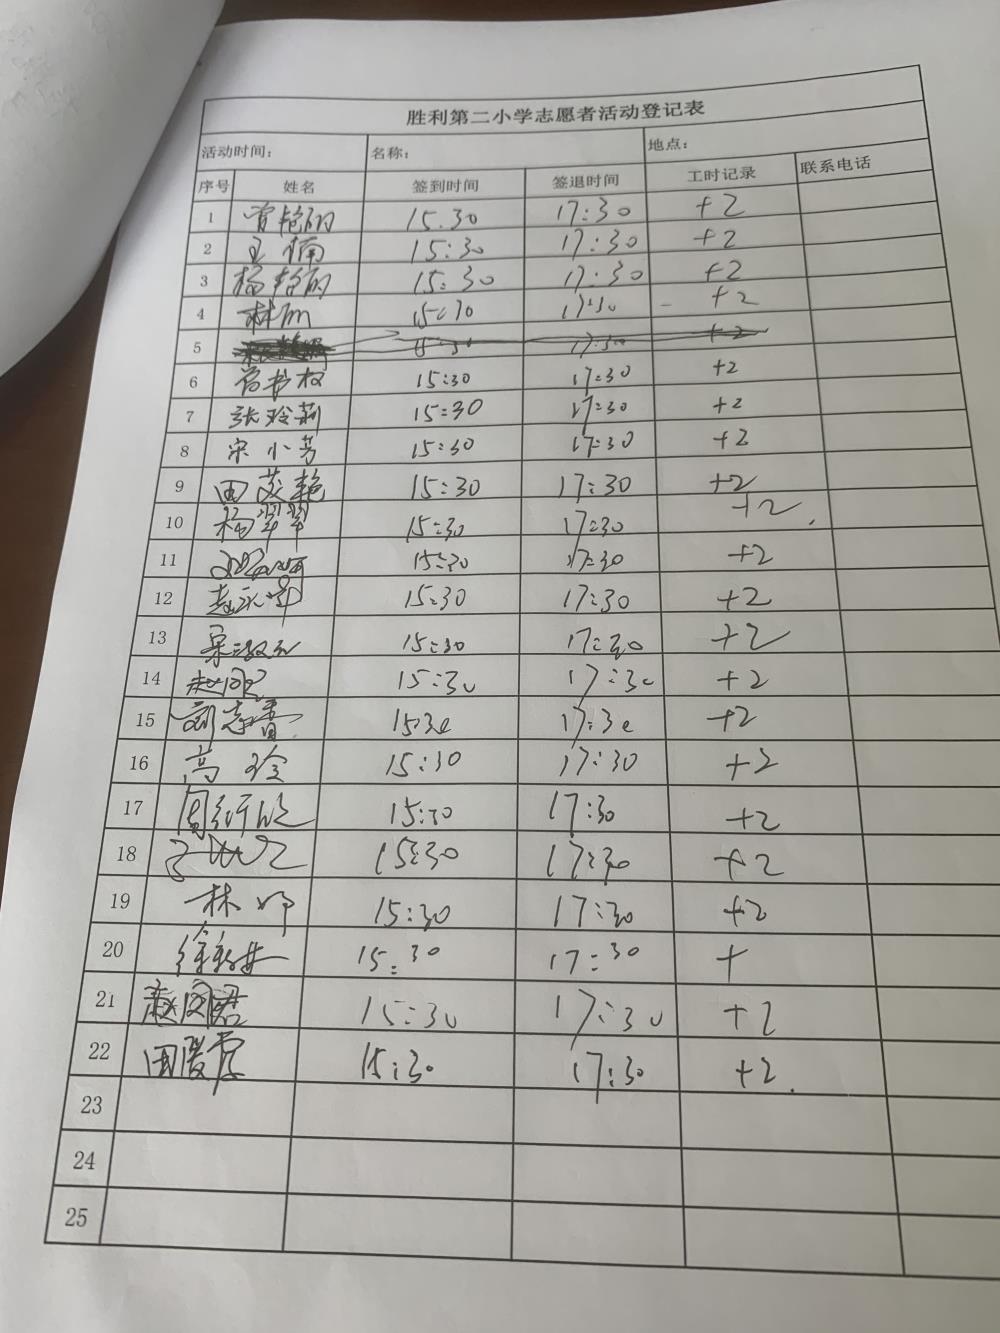 胜利第二小学志愿者活动登记表
活动时间: 名称: 地点:
序号 姓名 签到时间 签退时间 工时记录 联系电话
1 15.30 17:30 +2
2 王楠 15:30 17:30 +2
3 杨艳丽 15:30 17:30 +2
4 林丽 15:30 17:30 +2
5 15:30 17:30 +2
6 15:30 17:30 +2
7 张玲莉 15:30 17:30 +2
8 宋小芳 15:30 17:30 +2
9 田茂艳 15:30 17:30 +2
10 杨翠翠 15:30 17:30 +2
11 15:30 17:30 +2
12 15:30 17:30 +2
13 15:30 17:30 +2
14 15:30 17:30 +2
15 刘志青 15:30 17:30 +2
16 高玲 15:30 17:30 +2
17 15:30 17:30 +2
18 15:30 17:30 +2
19 林 15:30 17:30 +2
20 15:30 17:30 +
21 15:30 17:30 +2
22 15:30 17:30 +2
23
24
25